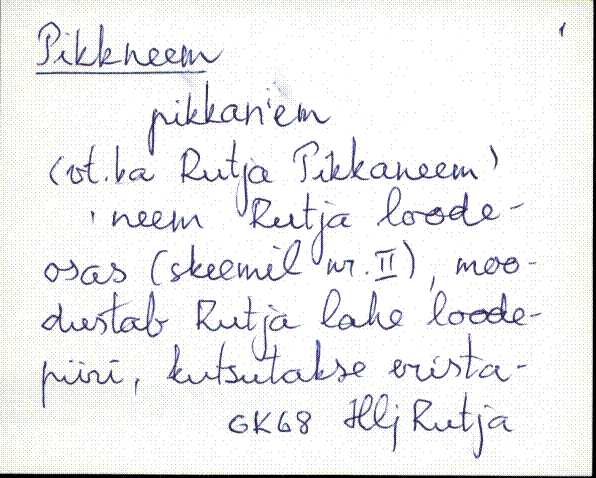 1
Pikkneem
pikkan'em
(vt. ka Rutja Pikkaneem)
neem Rutja loode-
osas (skeemil nr. II), moo-
dustab Rutja lahe loode-
piiri, kutsutakse erista-
GK68 Hlj Rutja